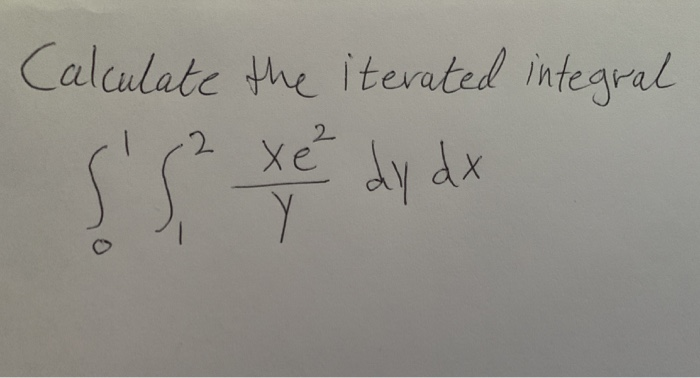 Calculate the iterated integral
∫₀¹ ∫₁² xe²/y dy dx